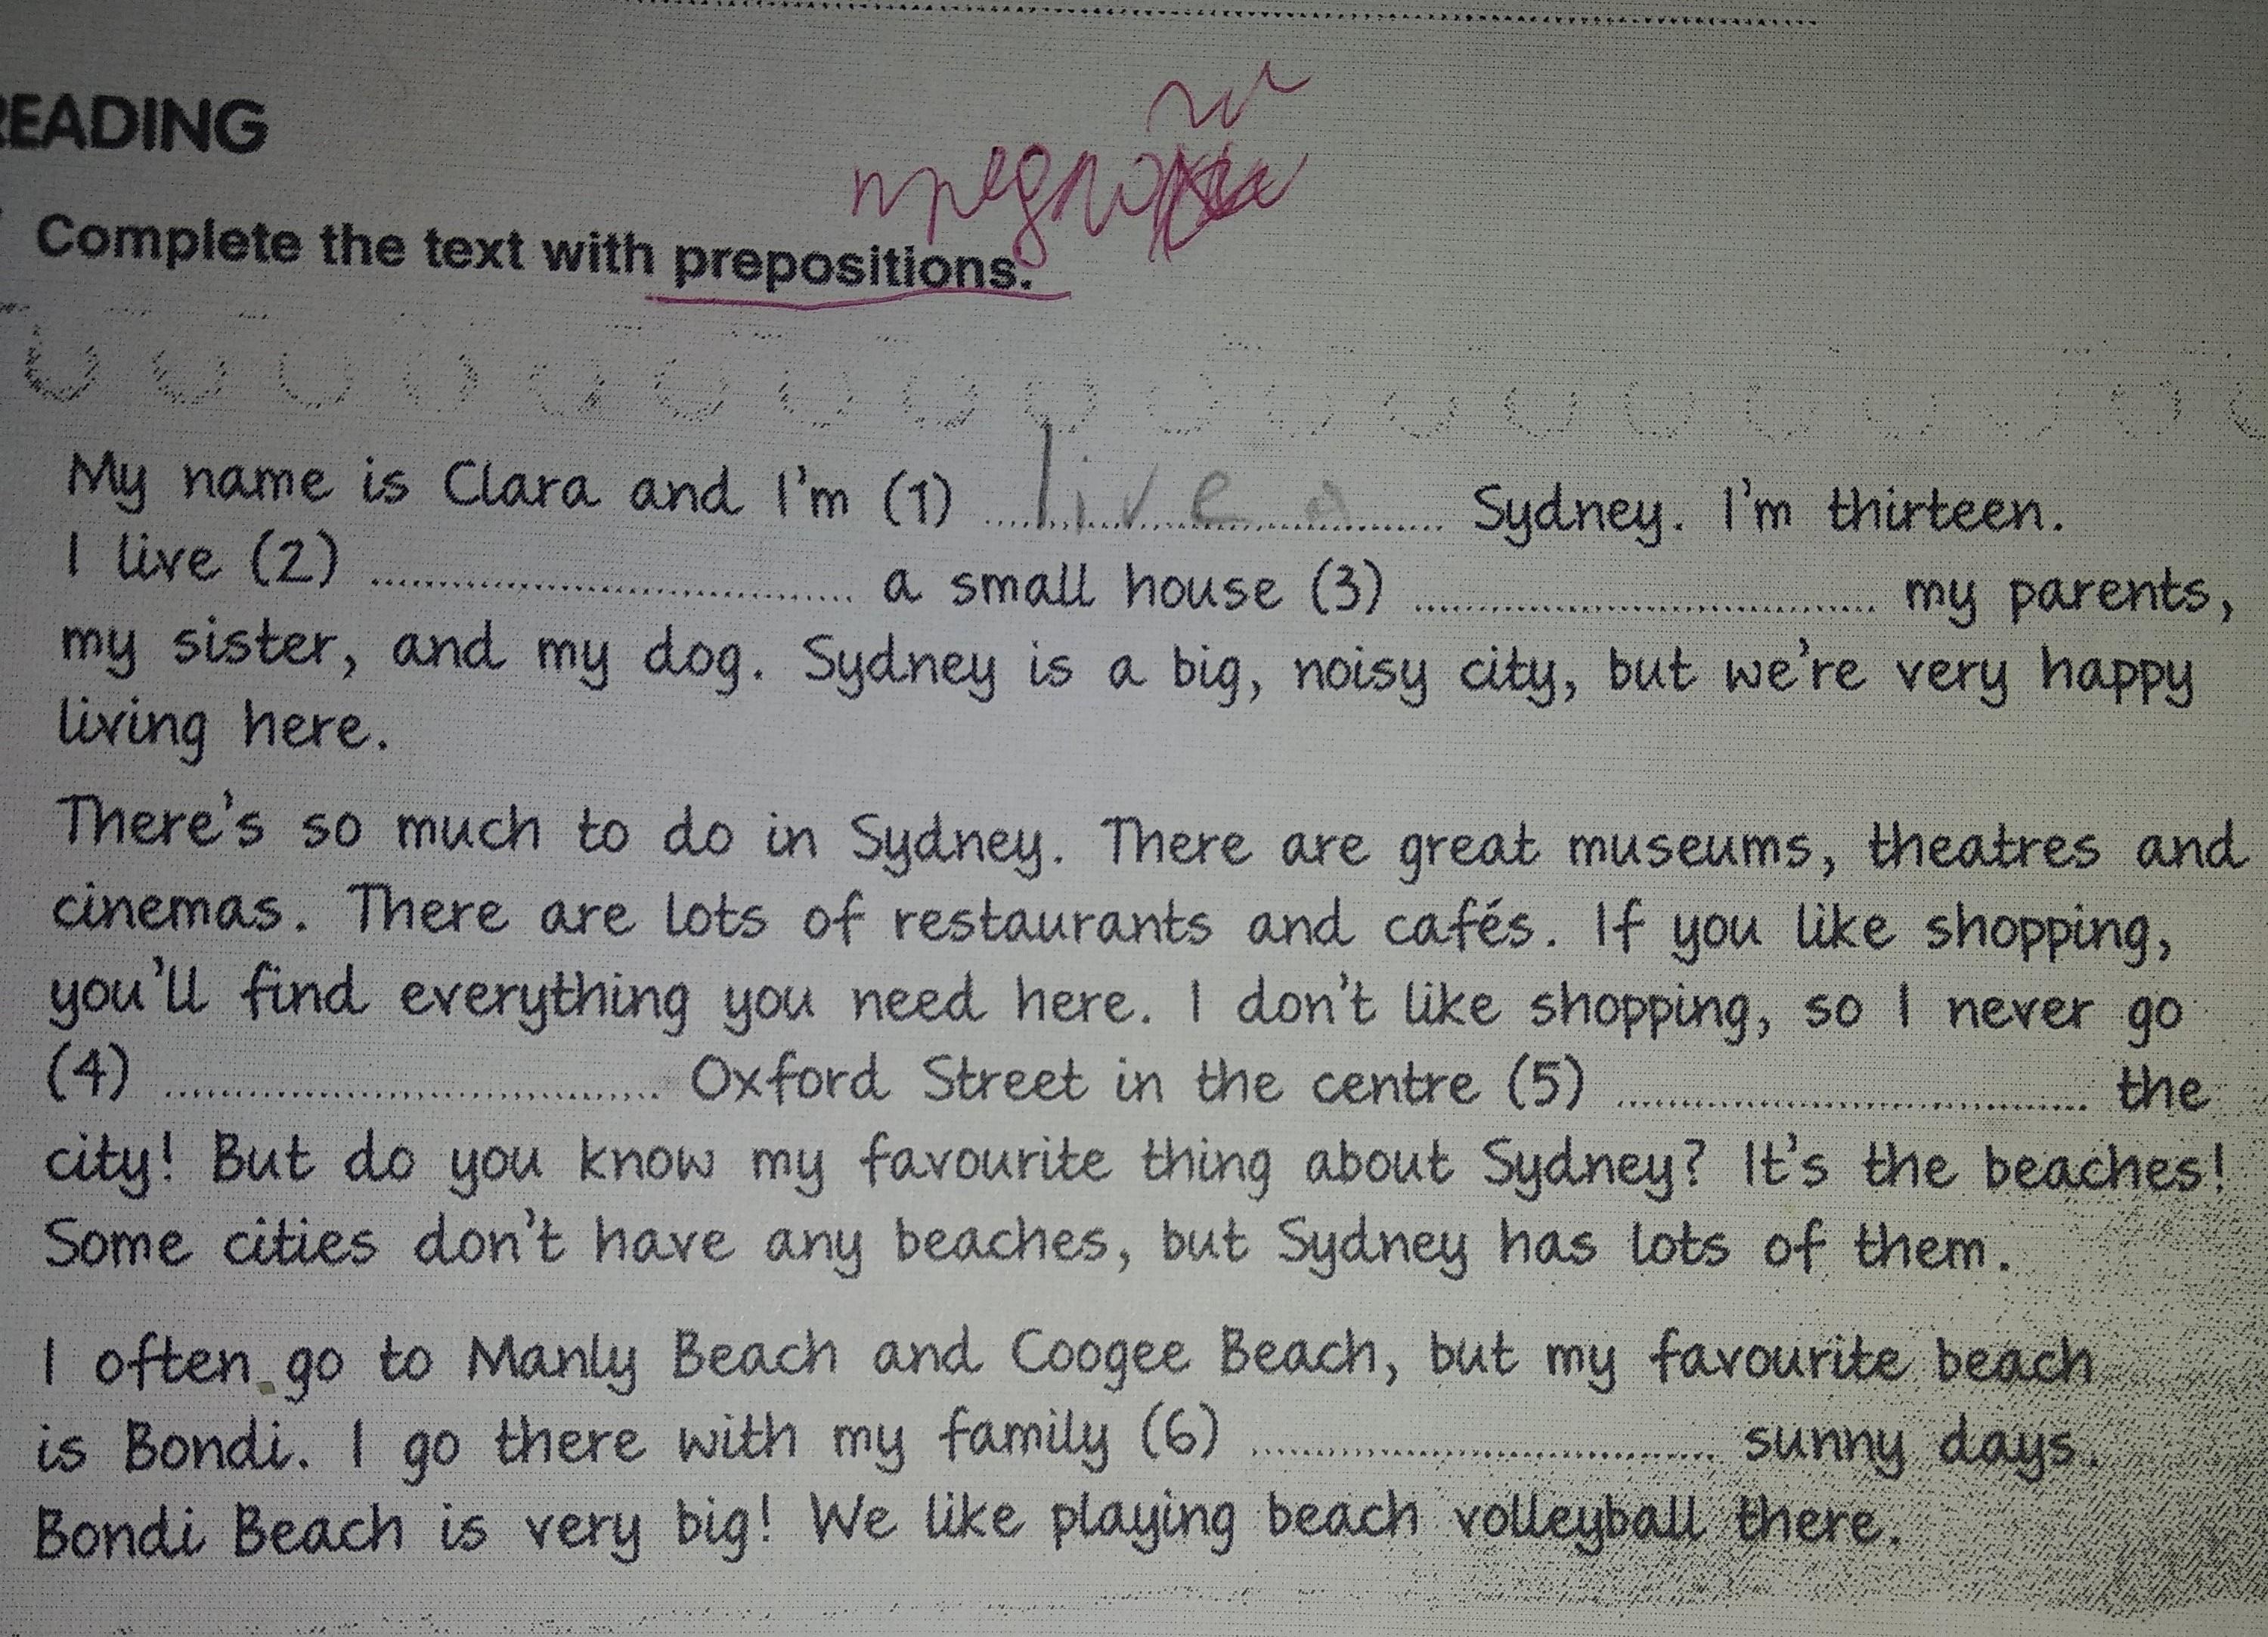 READING
Complete the text with prepositions.
My name is Clara and I'm (1) live a Sydney. I'm thirteen.
I live (2) .......... a small house (3) .......... my parents,
my sister, and my dog. Sydney is a big, noisy city, but we're very happy
living here.
There's so much to do in Sydney. There are great museums, theatres and
cinemas. There are lots of restaurants and cafés. If you like shopping,
you'll find everything you need here. I don't like shopping, so I never go
(4) .......... Oxford Street in the centre (5) .......... the
city! But do you know my favourite thing about Sydney? It's the beaches!
Some cities don't have any beaches, but Sydney has lots of them.
I often go to Manly Beach and Coogee Beach, but my favourite beach
is Bondi. I go there with my family (6) .......... sunny days.
Bondi Beach is very big! We like playing beach volleyball there.